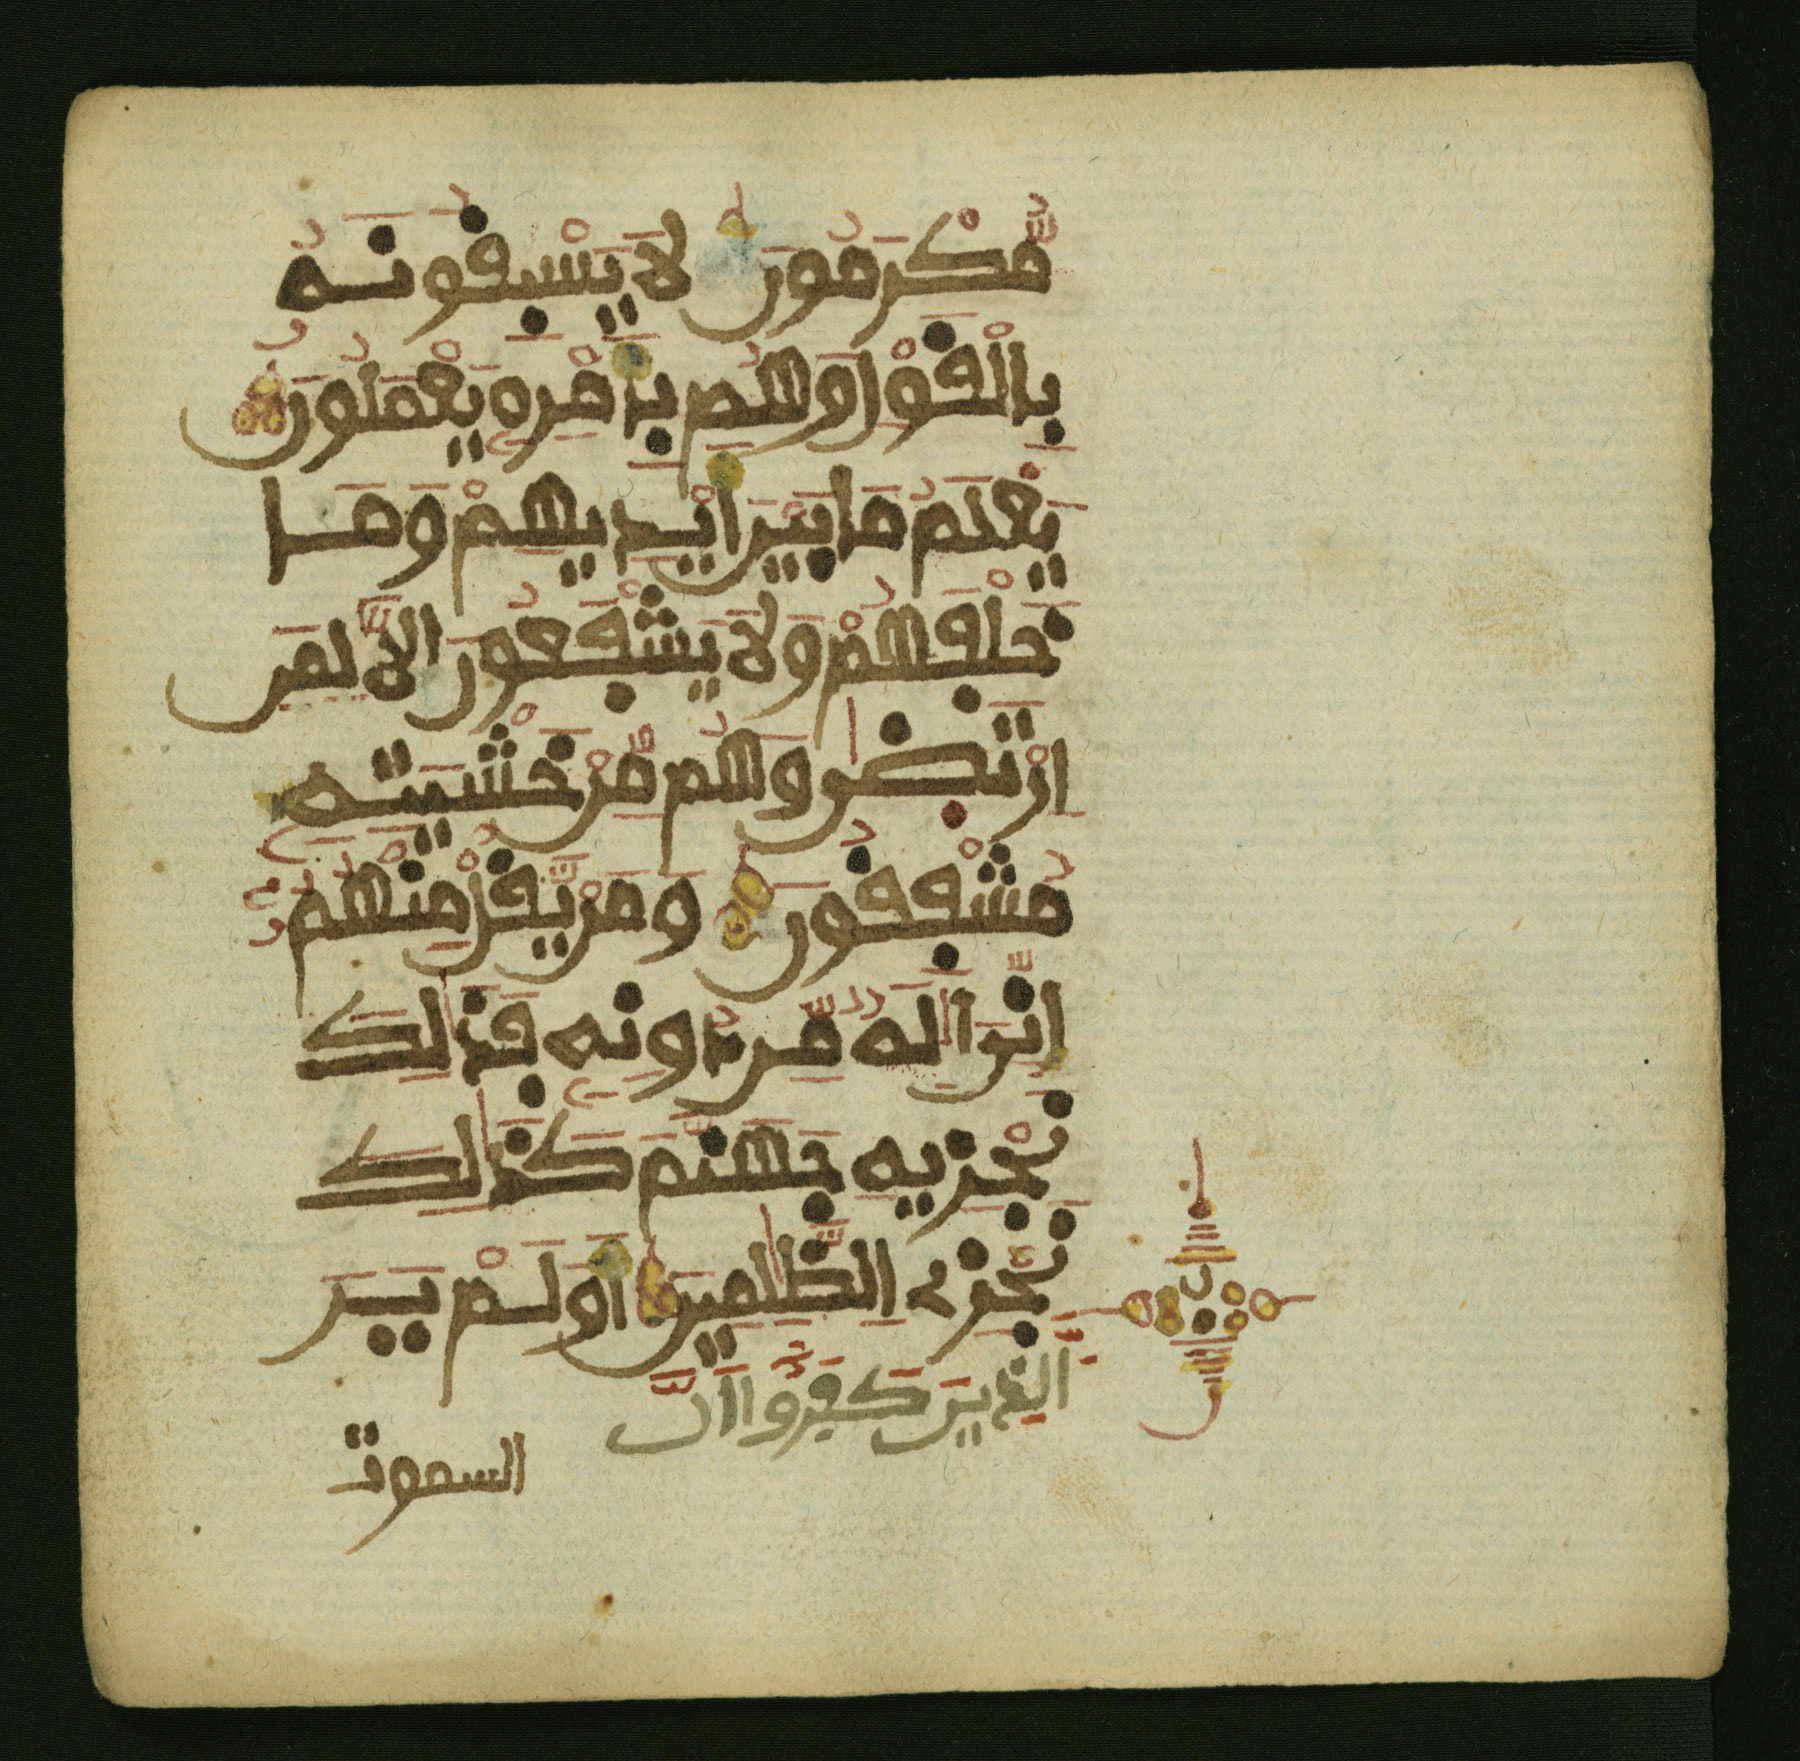 مُّكْرَمُونَ لَا يَسْبِقُونَهُ
بِالْقَوْلِ وَهُم بِأَمْرِهِ يَعْمَلُونَ
يَعْلَمُ مَا بَيْنَ أَيْدِيهِمْ وَمَا
خَلْفَهُمْ وَلَا يَشْفَعُونَ إِلَّا لِمَنِ
ارْتَضٰى وَهُم مِّنْ خَشْيَتِهِ
مُشْفِقُونَ وَمَنْ يَّقُلْ مِنْهُمُ
إِنِّيَ إِلٰهٌ مِّن دُونِهِ فَذٰلِكَ
نَجْزِيهِ جَهَنَّمَ كَذٰلِكَ
نَجْزِي الظّٰلِمِينَ أَوَلَمْ يَرَ
الذِينَ كَفَرُوا أَنَّ
السموت